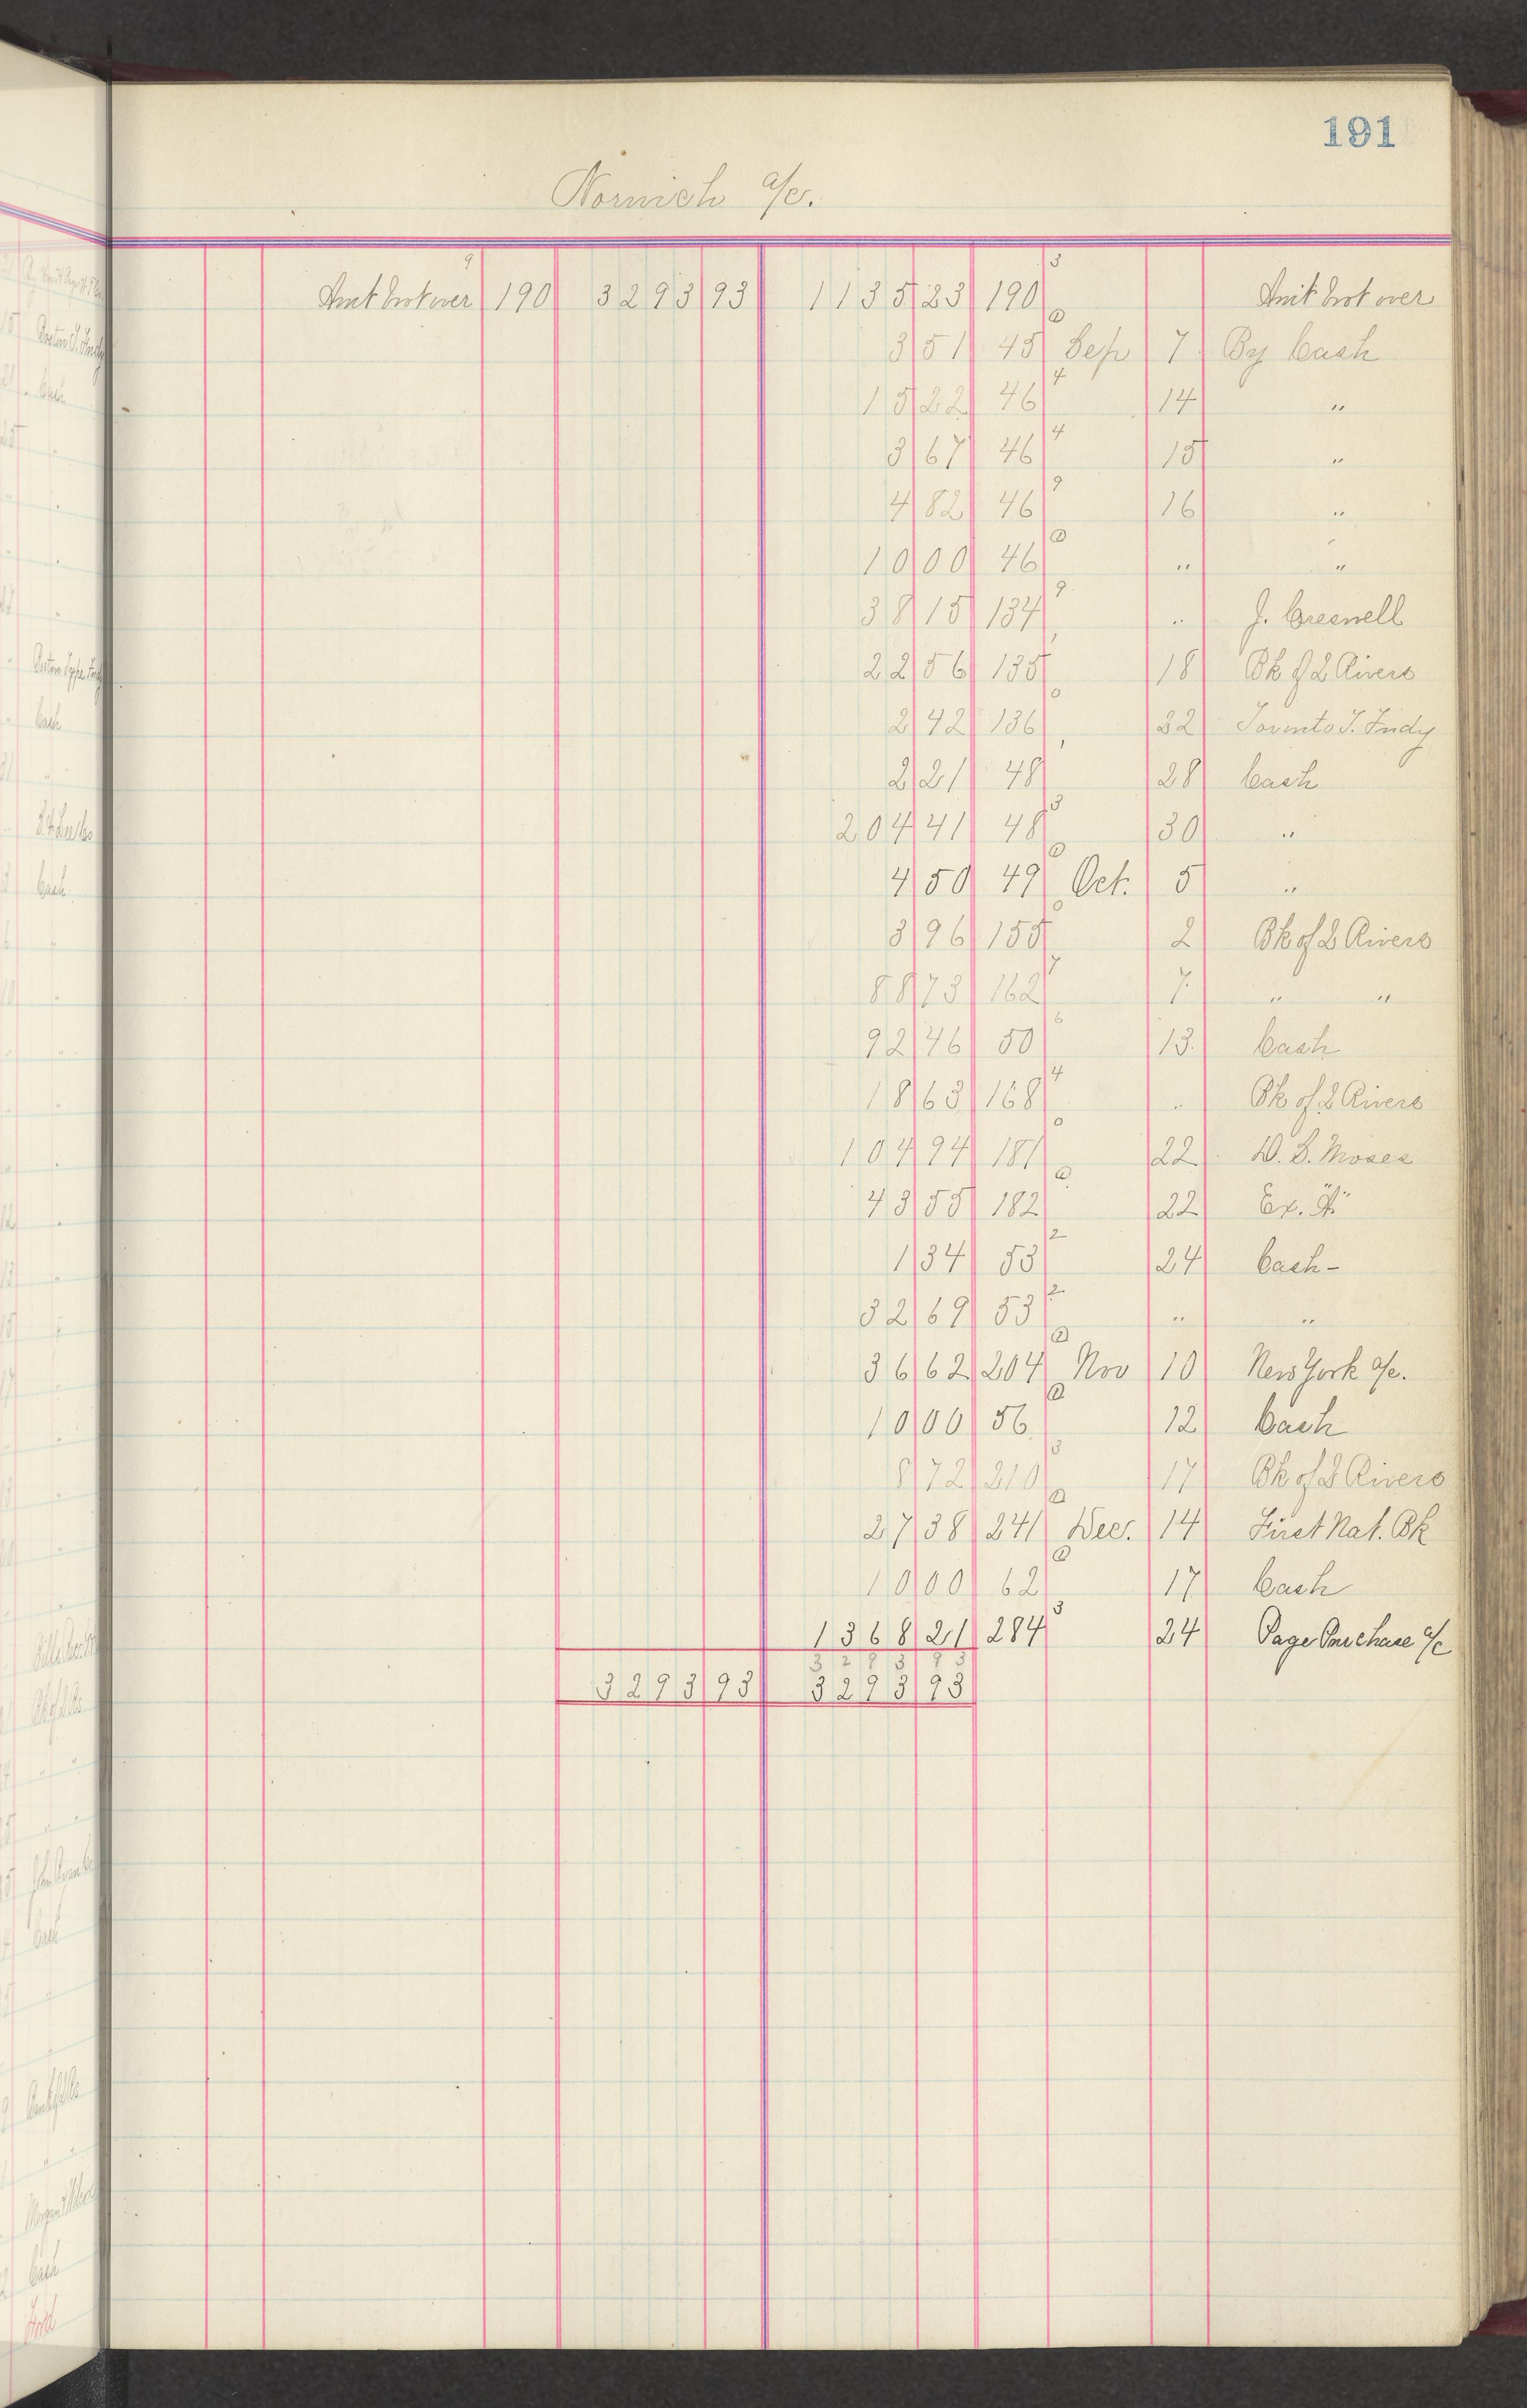 191
Norwich a/c.
9 3
Amt brot over 190 3293 93 1135 23 190 Amt brot over
3 51 45 Sep 7 By Cash
15 22 46 4 14 "
3 67 46 4 15 "
4 82 46 9 16 "
10 00 46 " "
38 15 134 9 " J. Creswell
22 56 135 18 Bk of 2 Rivers
2 42 136 0 22 Toronto T. Fndy
2 21 48 28 Cash
204 41 48 3 30 "
4 50 49 Oct. 5 "
3 96 155 0 2 Bk of 2 Rivers
88 73 162 7 7 " "
92 46 50 6 13 Cash
18 63 168 4 " Bk of 2 Rivers
104 94 181 0 22 W. B. Moses
43 55 182 22 Ex. "A"
1 34 53 2 24 Cash -
32 69 53 2 " "
36 62 204 Nov 10 New York a/c.
10 00 56 12 Cash
8 72 210 3 17 Bk of 2 Rivers
27 38 241 Dec. 14 First Nat. Bk
10 00 62 17 Cash
1368 21 284 3 24 Page Purchase a/c
3293 93
3293 93 3293 93